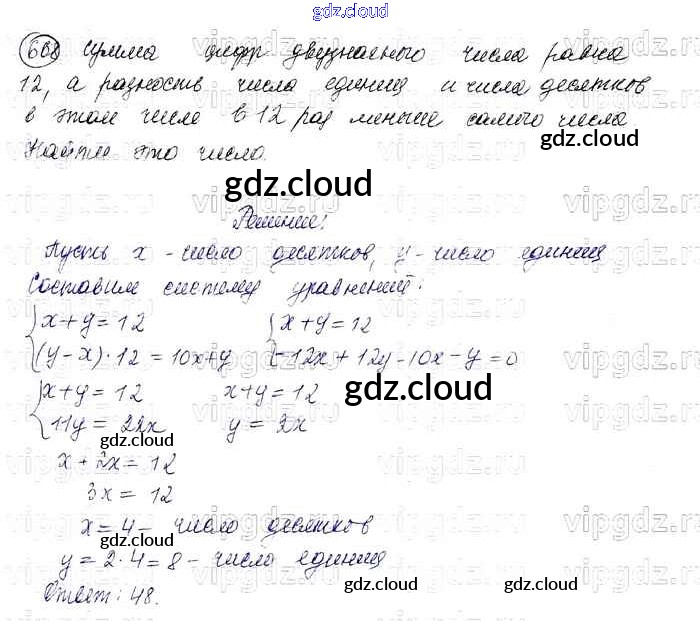 gdz.cloud
668 Сумма цифр двузначного числа равна
12, а разность числа единиц и числа десятков
в этом числе в 12 раз меньше самого числа.
Найти это число.
gdz.cloud
gdz.cloud
Решение:
Пусть x - число десятков, y - число единиц
Составим систему уравнений:
{x+y=12 {x+y=12
(y-x)·12=10x+y -12x+12y-10x-y=0
{x+y=12 x+y=12 gdz.cloud
11y=22x y=2x
gdz.cloud gdz.cloud
x+2x=12
3x=12
x=4 - число десятков
y=2·4=8 - число единиц
gdz.cloud
Ответ: 48.
gdz.cloud
gdz.cloud